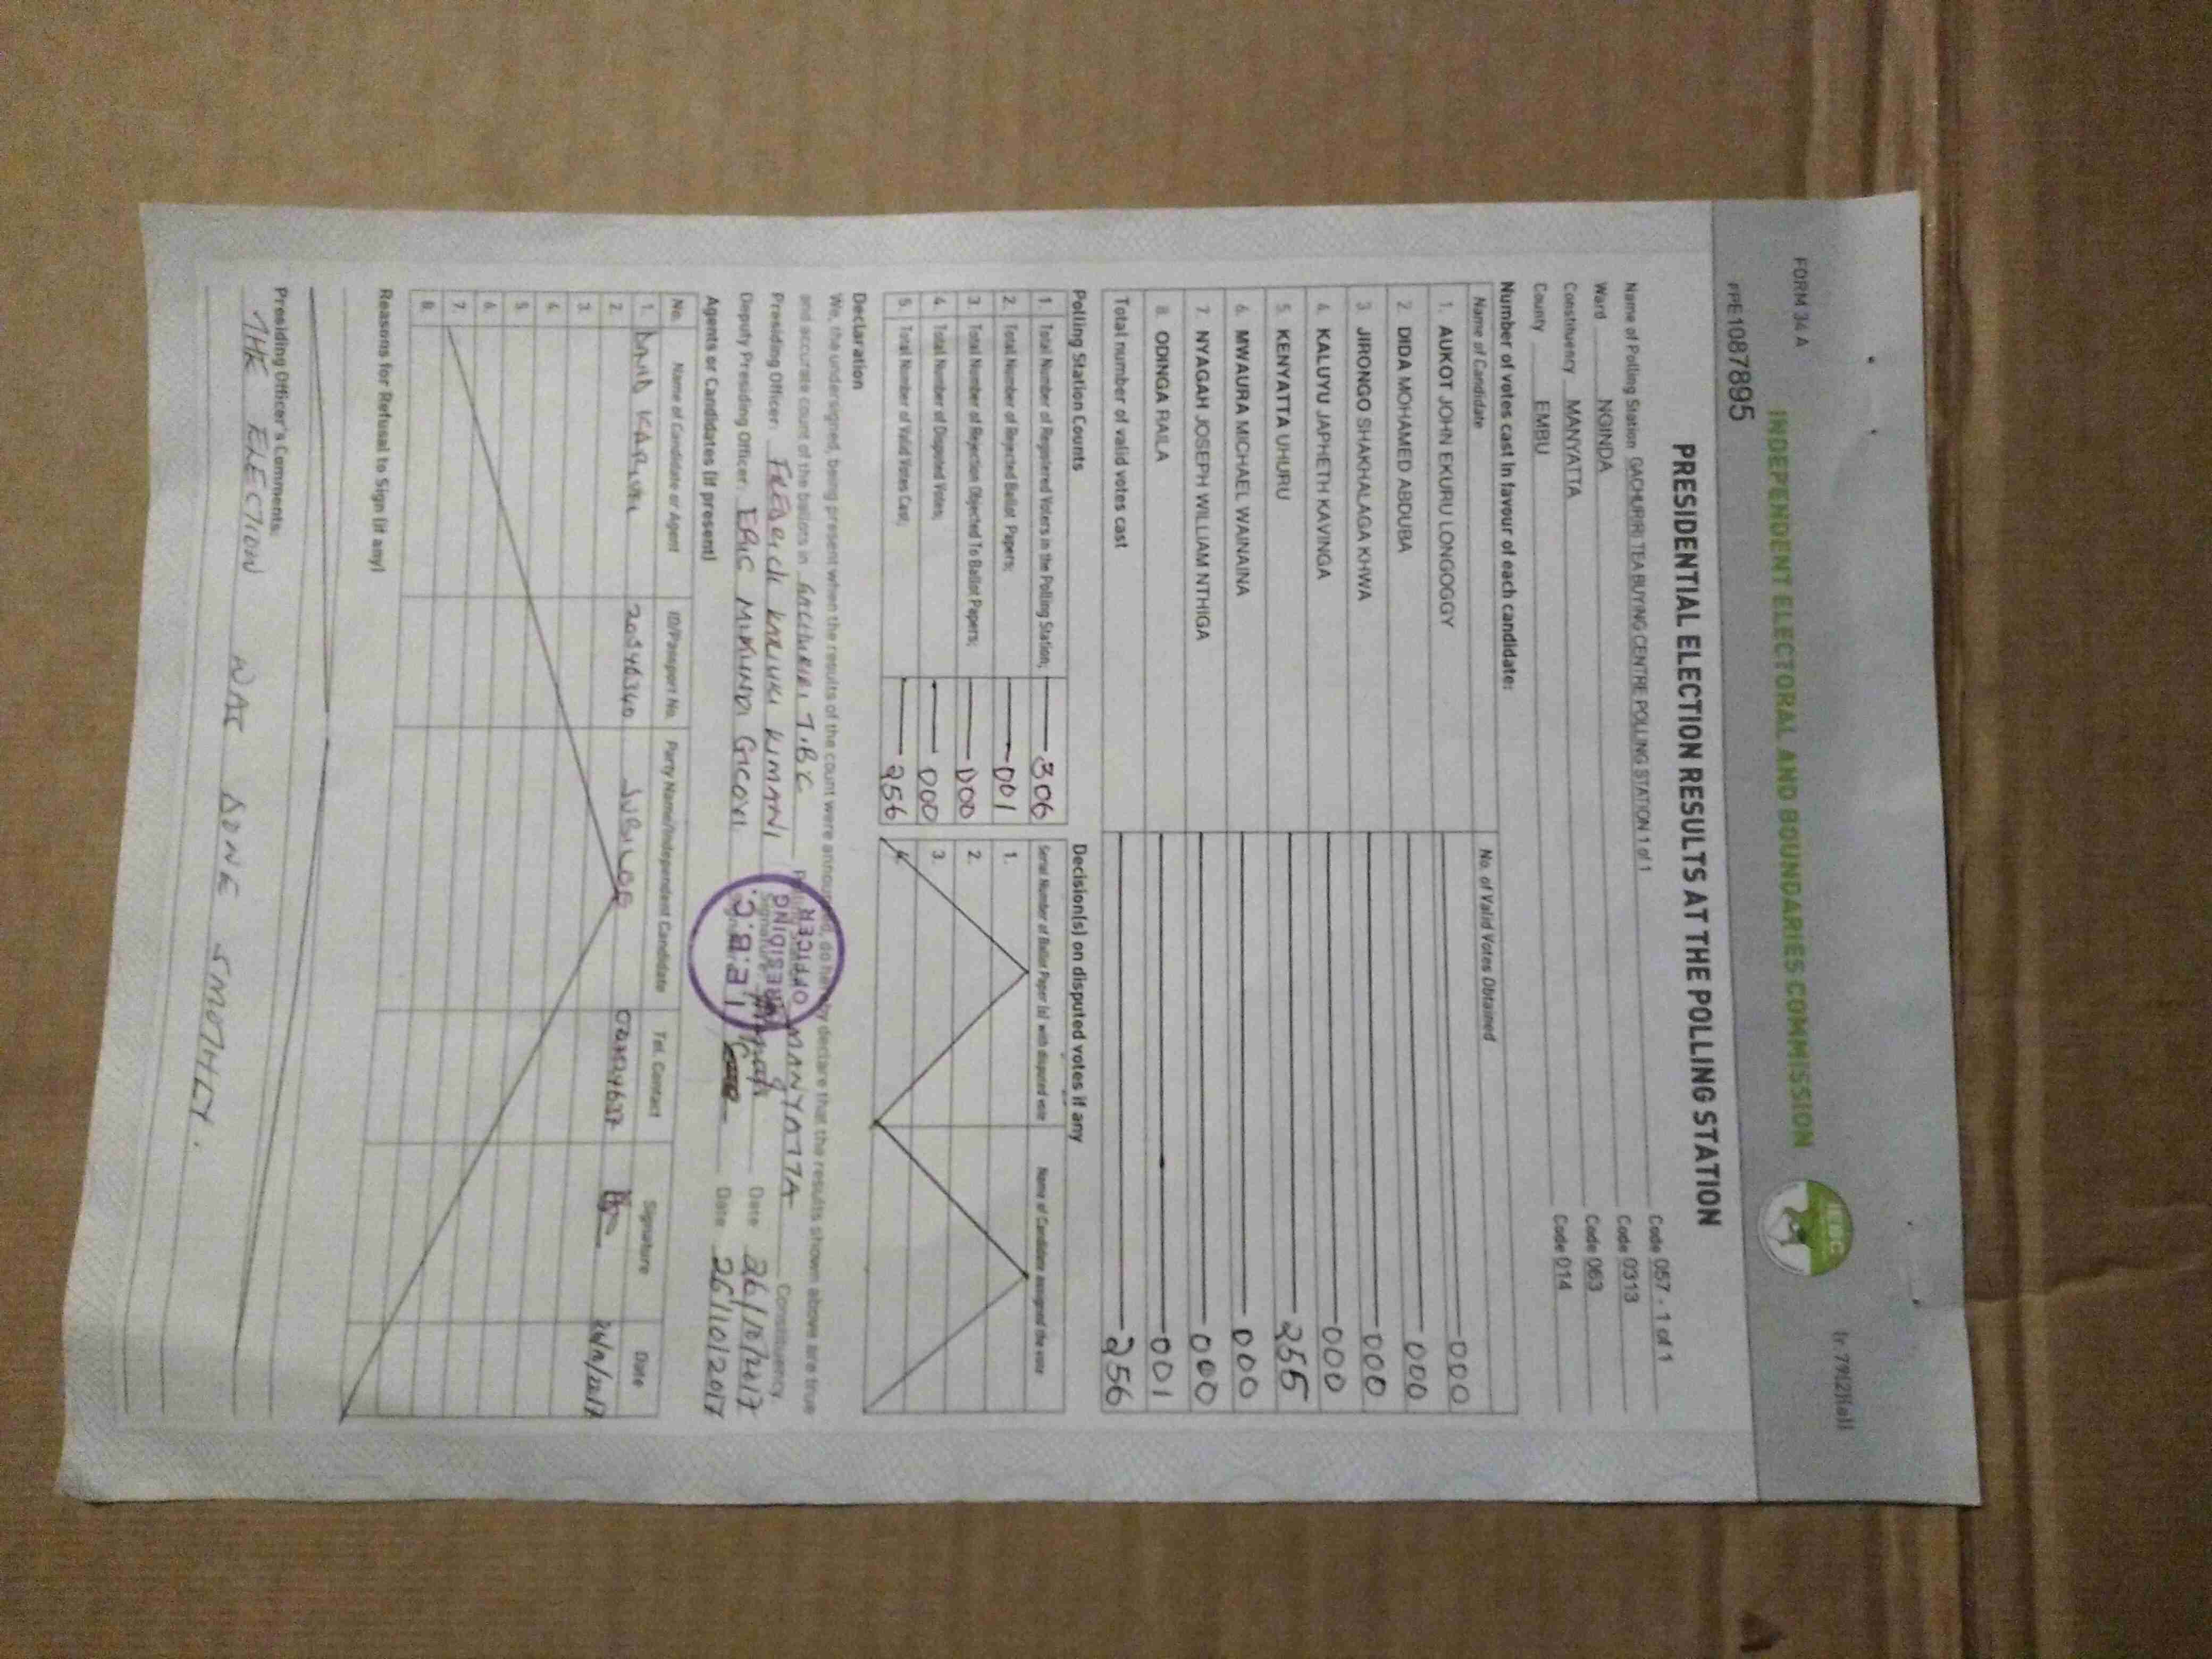 FORM 34 A
INDEPENDENT ELECTORAL AND BOUNDARIES COMMISSION
IEBC
FPE1087895
PRESIDENTIAL ELECTION RESULTS AT THE POLLING STATION
Name of Polling Station GACHURIRI TEA BUYING CENTRE POLLING STATION 1 of 1 Code 057 - 1 of 1
Ward NGINDA Code 0313
Constituency MANYATTA Code 063
County EMBU Code 014
Number of votes cast in favour of each candidate:
Name of Candidate No. of Valid Votes Obtained
1. AUKOT JOHN EKURU LONGOGGY 000
2. DIDA MOHAMED ABDUBA 000
3 JIRONGO SHAKHALAGA KHWA 000
4. KALUYU JAPHETH KAVINGA 000
5. KENYATTA UHURU 255
6. MWAURA MICHAEL WAINAINA 000
7. NYAGAH JOSEPH WILLIAM NTHIGA 000
8. ODINGA RAILA 001
Total number of valid votes cast 256
Polling Station Counts
1. Total Number of Registered Voters in the Polling Station; 306
2. Total Number of Rejected Ballot Papers; 001
3. Total Number of Rejection Objected To Ballot Papers; 000
4. Total Number of Disputed Votes; 000
5. Total Number of Valid Votes Cast; 256
Decision(s) on disputed votes if any
Serial Number of Ballot Paper (s) with disputed vote Name of Candidate assigned the vote
1.
2.
3.
4.
Declaration
We, the undersigned, being present when the results of the count were announced, do hereby declare that the results shown above are true
and accurate count of the ballots in GACHURIRI T.B.C MANYATTA Constituency.
Presiding Officer: FREDRICK KARIUKI KIMANI Date 26/10/2017
Deputy Presiding Officer: ERIC MUKUNDI GICOVI Date 26/10/2017
I.E.B.C.
PRESIDING
OFFICER
Agents or Candidates (if present)
No. Name of Candidate or Agent ID/Passport No. Party Name/Independent Candidate Tel. Contact Signature Date
1. DAVID 20546340 JUBILEE 26/10/2017
2.
3.
4.
5.
6.
7.
8.
Reasons for Refusal to Sign (if any)
Presiding Officer's Comments:
THE ELECTION WAS DONE SMOTHLY.